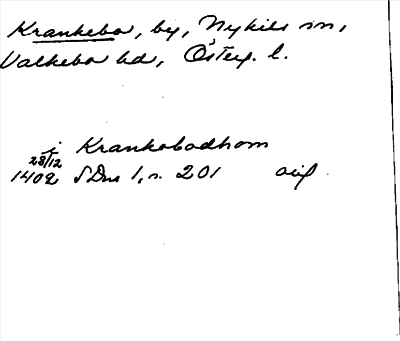 Krankebo, by, Nykils sn,
Valkebo hd, Östg. l.
i Krankobodhom
28/12
1402 SDns 1, s. 201 orig.